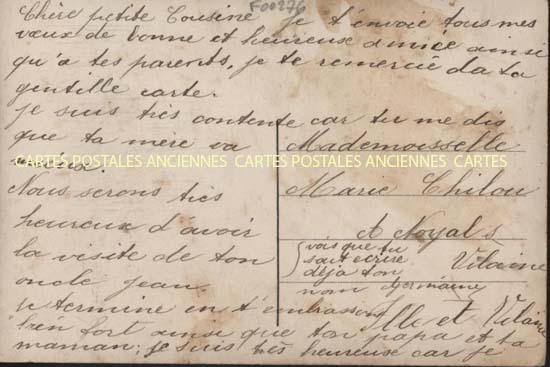 F00276
Chère petite Cousine je t'envoie tous mes
vœux de bonne et heureuse année ainsi
qu'a tes parents, je te remercie da ta
gentille carte.
je suis très contente car tu me dis
que ta mère va
mieux.
Nous serons très
heureux d'avoir
la visite de ton
oncle jean.
je termine en t'embrassant
bien fort ainsi que ton papa et ta
maman; je suis très heureuse car je
vois que tu
sait écrire
déja ton
nom Germaine
Mademoisselle
Marie Chilou
A Noyal s
Vilaine
Ille et Vilaine
CARTES POSTALES ANCIENNES CARTES POSTALES ANCIENNES CARTES